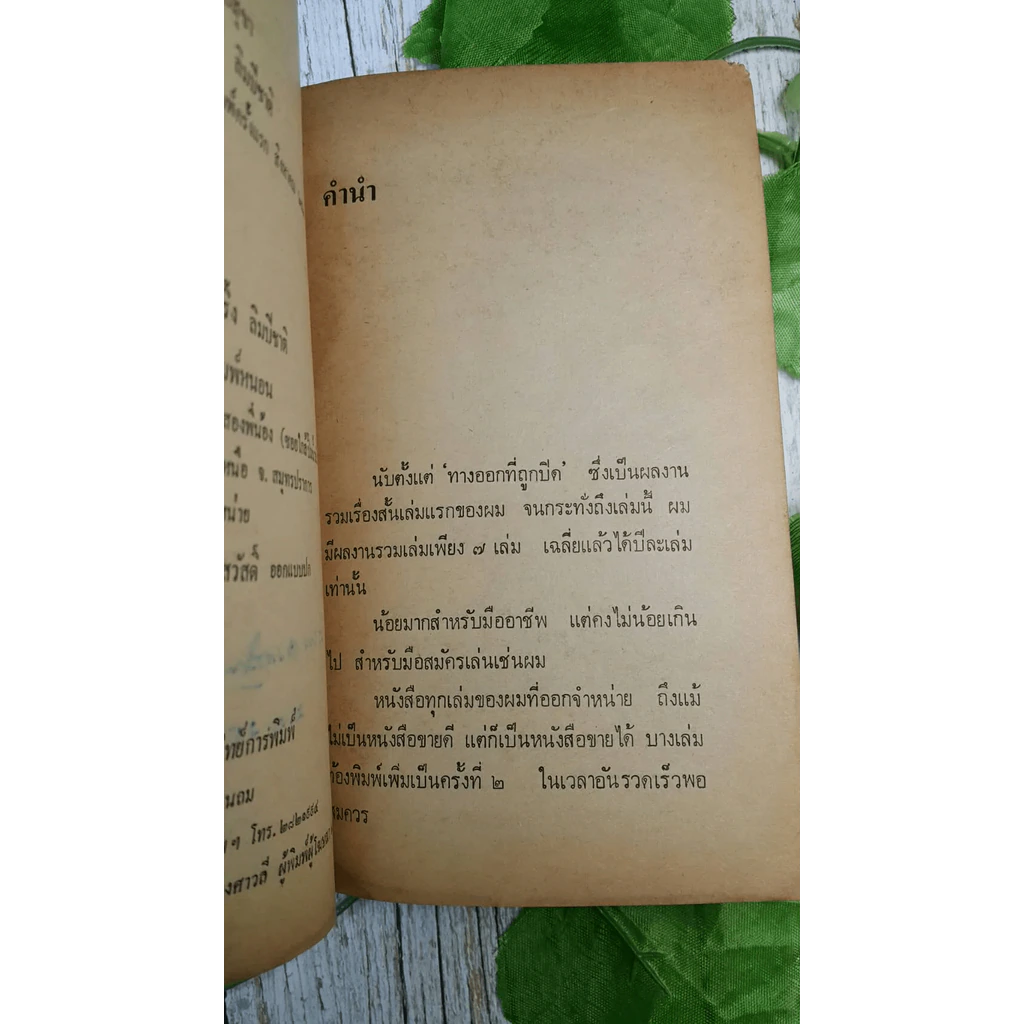 ลิมปิชาติ
ลิมปิชาติ
สองพี่น้อง
จ. สมุทรปราการ
ออกแบบปก
โทร. ๒๘๒๑๕๕๔
คำนำ
นับตั้งแต่ 'ทางออกที่ถูกปิด' ซึ่งเป็นผลงาน
รวมเรื่องสั้นเล่มแรกของผม จนกระทั่งถึงเล่มนี้ ผม
มีผลงานรวมเล่มเพียง ๗ เล่ม เฉลี่ยแล้วได้ปีละเล่ม
เท่านั้น
น้อยมากสำหรับมืออาชีพ แต่คงไม่น้อยเกิน
ไป สำหรับมือสมัครเล่นเช่นผม
หนังสือทุกเล่มของผมที่ออกจำหน่าย ถึงแม้
ไม่เป็นหนังสือขายดี แต่ก็เป็นหนังสือขายได้ บางเล่ม
ต้องพิมพ์เพิ่มเป็นครั้งที่ ๒ ในเวลาอันรวดเร็วพอ
สมควร